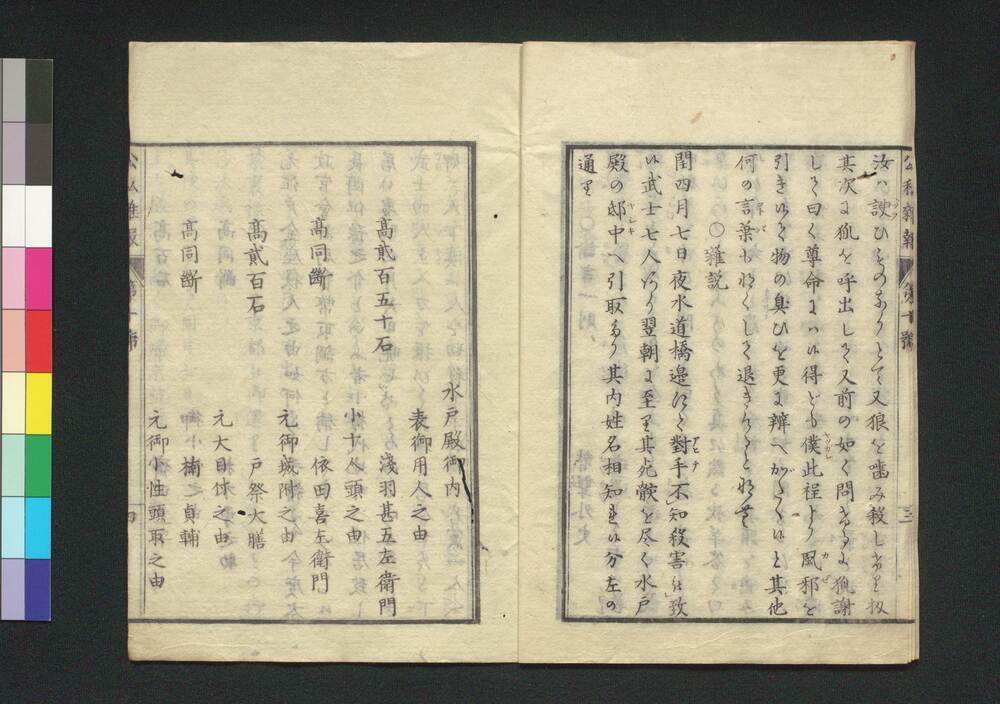 公私雜報 第十號 三
汝ハ諛ひものなりとて又狼を噛み殺しけり扨
其次に狐を呼出して又前の如く問けるに狐謝
して曰く尊命にハ候得ども僕此程より風邪を
引き候て物の臭ひを更に辨へがたく候と其他
何の言葉もなくして退きけるとなむ
〇雜説
閏四月七日夜水道橋邊にて對手不知殺害に致
候武士七人あり翌朝に至り其死骸を尽く水戸
殿の邸中へ引取たり其内姓名相知れ候分左の
通り
水戸殿御内
表御用人之由
高貳百五十石 淺羽甚五左衛門
小十人頭之由
高同斷 依田喜左衛門
元御城附之由
高貳百石 戸祭大膳
元大目付之由
高同斷 楠貞輔
元御小性頭取之由
公私雜報 第十號 四